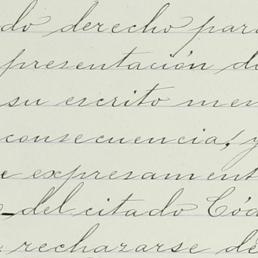 do derecho para
presentación de
su escrito men
consecuencia, y
e expresament
del citado Cód
rechazarse de